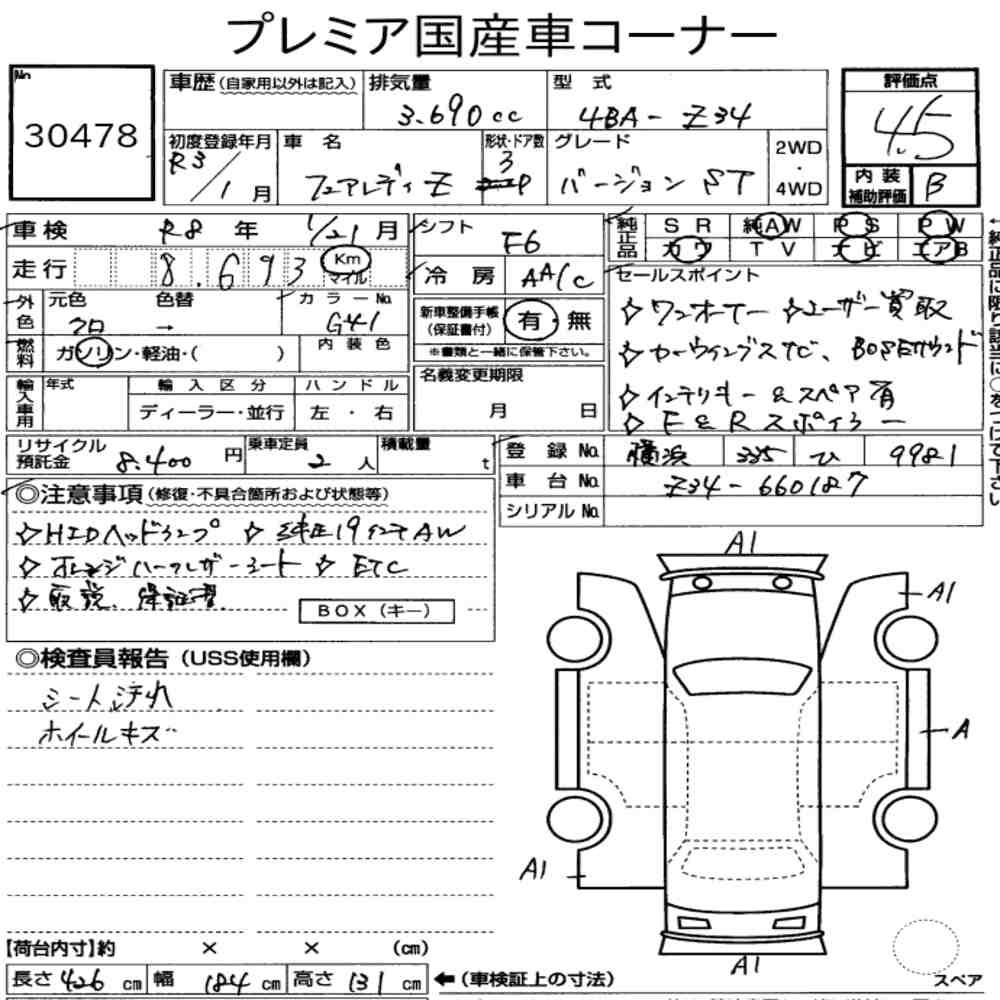 プレミア国産車コーナー
No
30478
車歴(自家用以外は記入) 排気量 3.690cc 型式 4BA-Z34
初度登録年月 R3/1月 車名 フェアレディZ 形状・ドア数 3 グレード バージョン ST 2WD・4WD
評価点 4.5
内装補助評価 B
車検 R8年 1/21月
走行 8.693 Km マイル
外色 元色 クロ 色替 → カラーNo. G41
燃料 ガソリン・軽油・( ) 内装色
輸入車用 年式 輸入区分 ハンドル
ディーラー・並行 左・右
リサイクル預託金 8.400円 乗車定員 2人 積載量 t
シフト F6
冷房 AA/C
新車整備手帳(保証書付) 有・無
※書類と一緒に保管下さい。
名義変更期限
月 日
純正品 SR 純AW PS PW
カワ TV ナビ エアB
セールスポイント
☆ワンオーナー ☆ユーザー買取
☆カーウイングスナビ、BOSEサウンド
☆インテリキー&スペア有
☆F&Rスポイラー
←純正品に限り該当に○をつけて下さい
登録No. 横浜 335 ひ 9981
車台No. Z34-660187
シリアルNo.
◎注意事項(修復・不具合箇所および状態等)
☆HIDヘッドランプ ☆純正19インチAW
☆オレンジハーフレザーシート ☆ETC
☆取説、保証書
BOX(キー)
◎検査員報告(USS使用欄)
シート汚れ
ホイールキズ
A1
A1
A
A1
A1
【荷台内寸】約 × × (cm)
長さ 426cm 幅 184cm 高さ 131cm ←(車検証上の寸法)
スペア